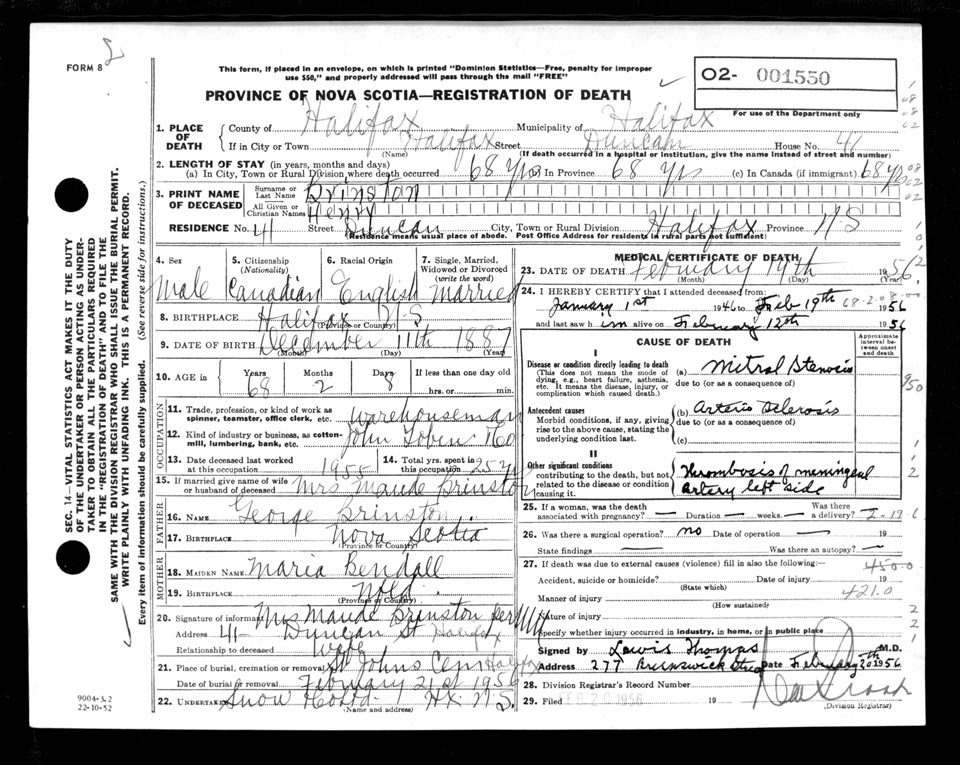 FORM 8
This form, if placed in an envelope, on which is printed "Dominion Statistics—Free, penalty for improper
use $50," and properly addressed will pass through the mail "FREE"
O2- 001550
For use of the Department only
PROVINCE OF NOVA SCOTIA—REGISTRATION OF DEATH
1. PLACE OF DEATH
County of Halifax Municipality of Halifax
If in City or Town Halifax Street Duncan House No. 41
(Name) (If death occurred in a hospital or institution, give the name instead of street and number)
2. LENGTH OF STAY (in years, months and days)
(a) In City, Town or Rural Division where death occurred 68 yrs (b) In Province 68 yrs (c) In Canada (if immigrant) 68 yrs
3. PRINT NAME OF DECEASED
Surname or Last Name Brinston
All Given or Christian Names Henry
RESIDENCE No. 41 Street Duncan City, Town or Rural Division Halifax Province N.S
(Residence means usual place of abode. Post Office Address for residents in rural parts not sufficient)
4. Sex Male
5. Citizenship (Nationality) Canadian
6. Racial Origin English
7. Single, Married, Widowed or Divorced (write the word) Married
8. BIRTHPLACE Halifax N.S
(Province or Country)
9. DATE OF BIRTH December 11th 1887
(Month) (Day) (Year)
10. AGE Years 68 Months 2 Days 8 If less than one day old
hrs. or min.
OCCUPATION
11. Trade, profession, or kind of work as spinner, teamster, office clerk, etc. Warehouseman
12. Kind of industry or business, as cotton-mill, lumbering, bank, etc. John Tobin & Co
13. Date deceased last worked at this occupation 1955
14. Total yrs. spent in this occupation 25 yrs
15. If married give name of wife or husband of deceased Mrs Maude Brinston
FATHER
16. NAME George Brinston
17. BIRTHPLACE Nova Scotia
(Province or Country)
MOTHER
18. MAIDEN NAME Maria Bendall
19. BIRTHPLACE Nfld.
(Province or Country)
20. Signature of informant Mrs Maude Brinston per
Address 41 Duncan St Halifax
Relationship to deceased Wife
21. Place of burial, cremation or removal St Johns Cem Halifax
Date of burial or removal February 21st 1956
22. UNDERTAKER Snow Hx N.S.
(Name and address)
MEDICAL CERTIFICATE OF DEATH
23. DATE OF DEATH February 19th 1956
(Month) (Day) (Year)
24. I HEREBY CERTIFY that I attended deceased from:
January 1st 1946 to Feb 19th 1956
and last saw him alive on February 12th 1956
68-2-08-00
CAUSE OF DEATH
Approximate interval between onset and death
I
Disease or condition directly leading to death
(This does not mean the mode of dying, e.g., heart failure, asthenia, etc. It means the disease, injury, or complication which caused death.)
(a) Mitral Stenosis
due to (or as a consequence of)
Antecedent causes
Morbid conditions, if any, giving rise to the above cause, stating the underlying condition last.
(b) Arterio Sclerosis
due to (or as a consequence of)
(c)
II
Other significant conditions
contributing to the death, but not related to the disease or condition causing it.
Thrombosis of meningeal
artery left side
25. If a woman, was the death associated with pregnancy? — Duration — weeks. — Was there a delivery?
26. Was there a surgical operation? no Date of operation — 19
State findings — Was there an autopsy? —
27. If death was due to external causes (violence) fill in also the following:—
450.0
Accident, suicide or homicide? Date of injury 19
(State which)
421.0
Manner of injury
(How sustained)
Nature of injury
Specify whether injury occurred in industry, in home, or in public place
Signed by Lewis Thomas M.D.
Address 277 Brunswick Street Date February 20th 1956
28. Division Registrar's Record Number
29. Filed FEB 20 1956 19
(Division Registrar)
SEC. 14—VITAL STATISTICS ACT MAKES IT THE DUTY
OF THE UNDERTAKER OR PERSON ACTING AS UNDER-
TAKER TO OBTAIN ALL THE PARTICULARS REQUIRED
IN THE "REGISTRATION OF DEATH" AND TO FILE THE
SAME WITH THE DIVISION REGISTRAR WHO SHALL ISSUE THE BURIAL PERMIT.
WRITE PLAINLY WITH UNFADING INK. THIS IS A PERMANENT RECORD.
Every item of information should be carefully supplied. (See reverse side for instructions.)
9004-3.2
22-10-52